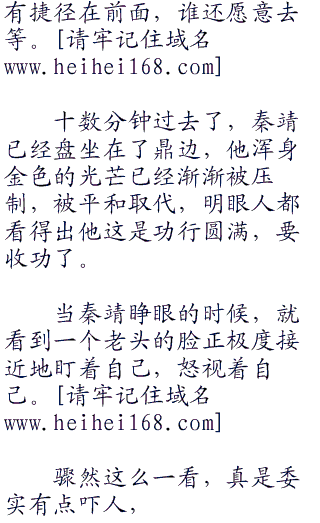 有捷径在前面，谁还愿意去
等。[请牢记住域名
www.heihei168.com]
十数分钟过去了，秦靖
已经盘坐在了鼎边，他浑身
金色的光芒已经渐渐被压
制，被平和取代，明眼人都
看得出他这是功行圆满，要
收功了。
当秦靖睁眼的时候，就
看到一个老头的脸正极度接
近地盯着自己，怒视着自
己。[请牢记住域名
www.heihei168.com]
骤然这么一看，真是委
实有点吓人，